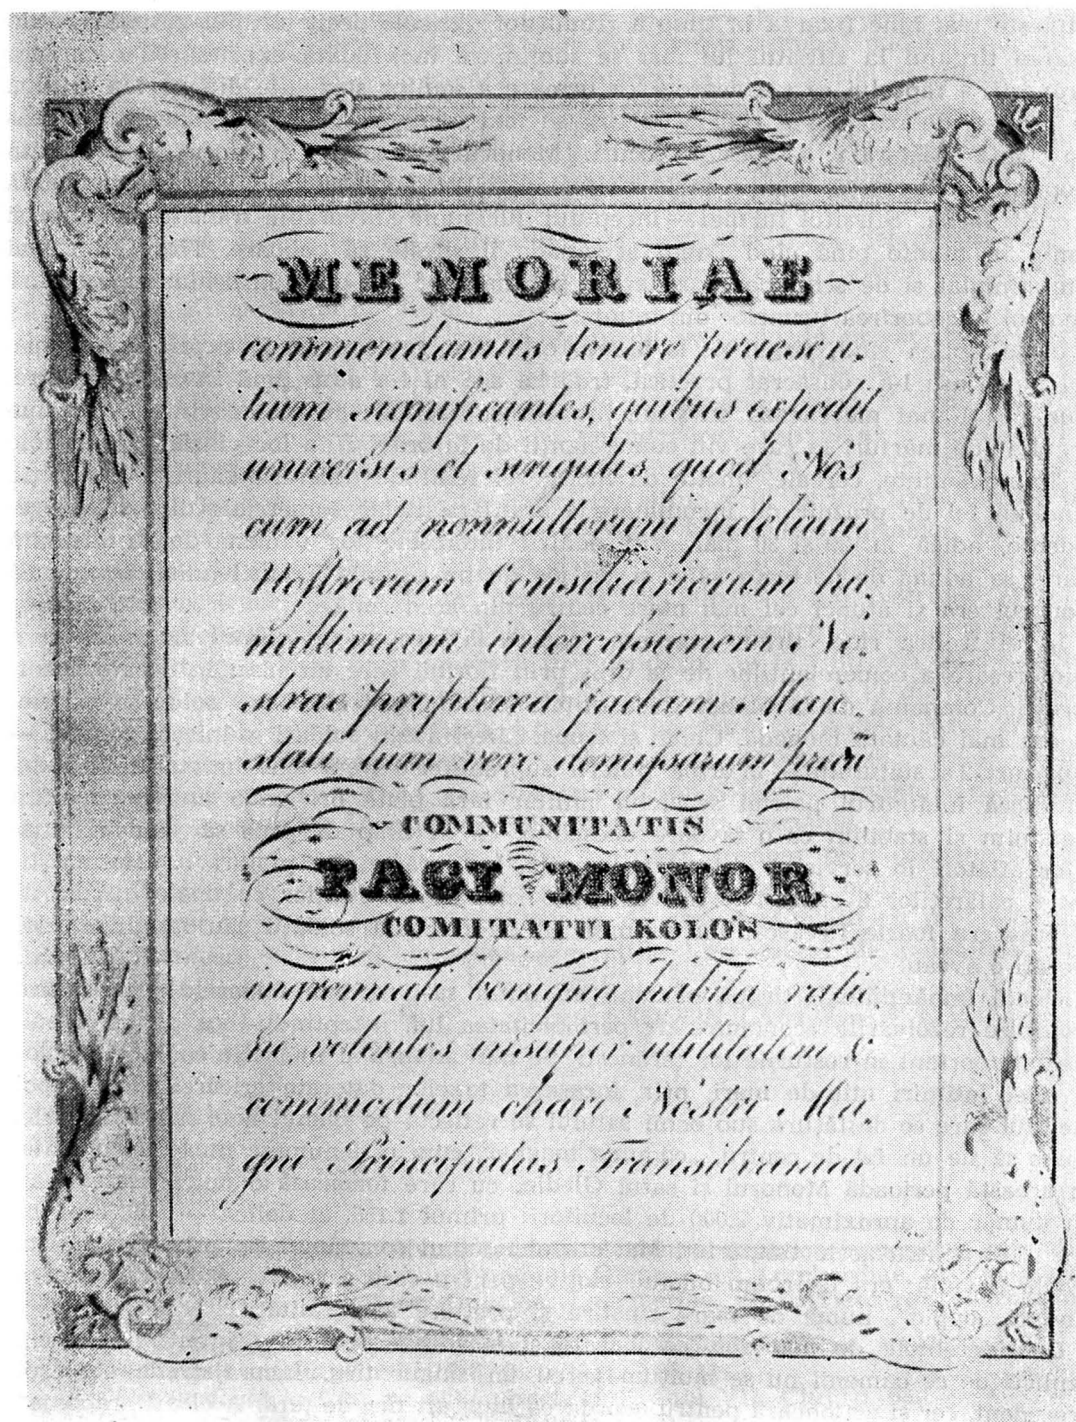 MEMORIAE
commendamus tenore praesen,
tium significantes, quibus expedit
universis et singulis, quod Nos
cum ad nonnullorum fidelium
Nostrorum Consiliariorum hu,
millimam intercessionem No,
strae propterea factam Maje,
stati, tum vero demissarum
COMMUNITATIS
PAGI MONOR
COMITATUI KOLOS
ingremiati benigna habita ratio,
ne, volentes insuper utilitatem &
commodum chari Nostri Ma,
gni Principatus Transilvaniae